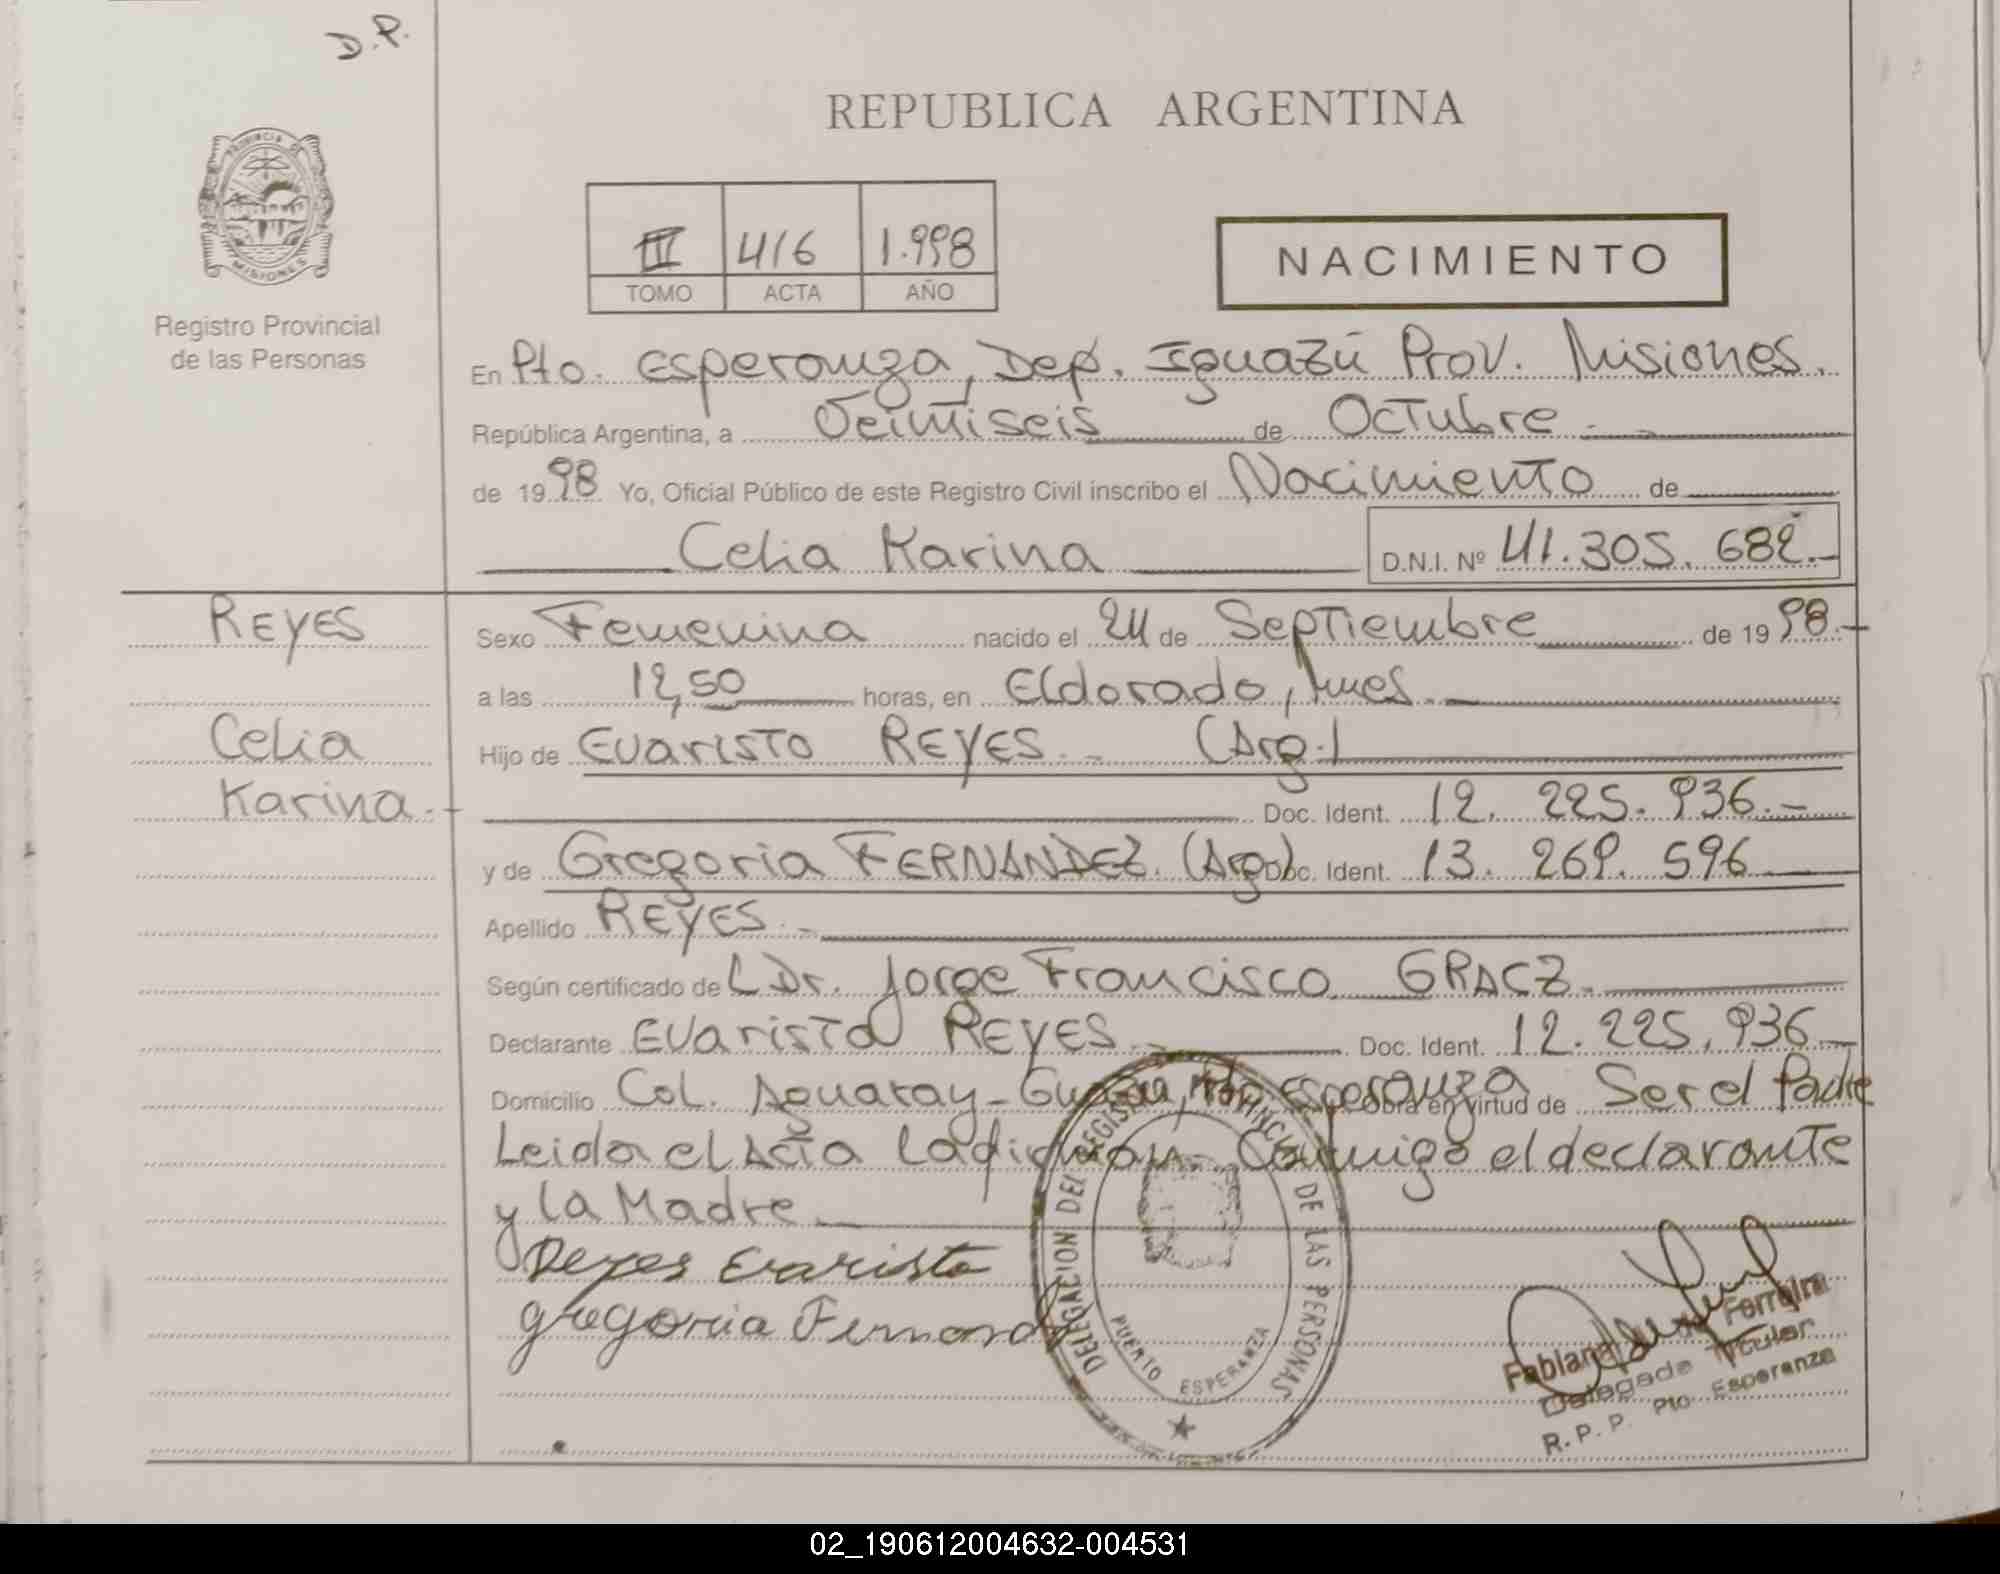 D.P.
REPUBLICA ARGENTINA
PROVINCIA DE
MISIONES
III 416 1.998
TOMO ACTA AÑO
NACIMIENTO
Registro Provincial
de las Personas
En Pto. Esperanza, Dep. Iguazú Prov. Misiones.
República Argentina, a Veintiseis de Octubre
de 1998 Yo, Oficial Público de este Registro Civil inscribo el Nacimiento de
Celia Karina D.N.I. Nº 41.305.682.-
REYES
Celia
Karina.-
Sexo Femenina nacido el 24 de Septiembre de 1998.-
a las 12,50 horas, en Eldorado, Mnes.
Hijo de Evaristo REYES.- (Arg.)
Doc. Ident. 12. 225. 936.-
y de Gregoria FERNANDEZ. (Arg.) Doc. Ident. 13. 269. 596
Apellido REYES.-
Según certificado de L Dr. Jorge Francisco GRACZ.
Declarante Evaristo REYES.- Doc. Ident. 12.225.936
Domicilio Col. Aguaray-Guazú, Pto. Esperanza Obra en virtud de Ser el Padre
Leida el Acta La firman Conmigo el declarante
y la Madre
Reyes Evaristo
gregoria Fernand
DELEGACION DEL REGISTRO PROVINCIAL DE LAS PERSONAS
PUERTO ESPERANZA
Fabiana de Ferreira
Delegada Titular
R.P.P. Pto Esperanza
02_190612004632-004531